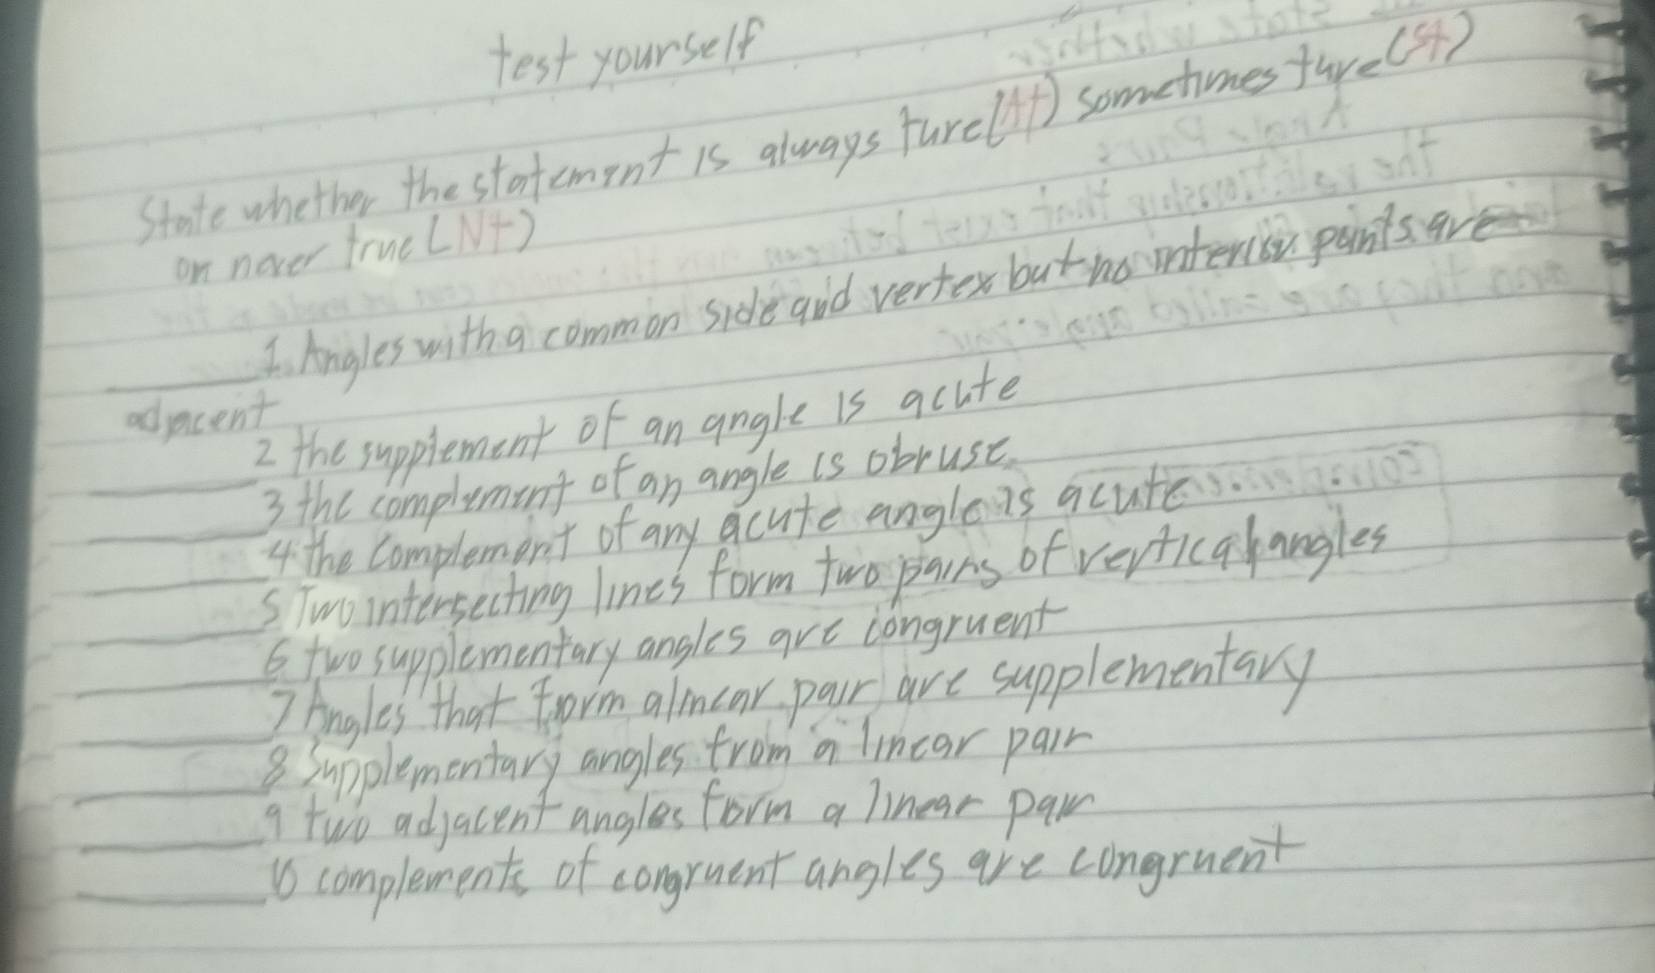 test yourself
State whether the statement is always ture (At) sometimes ture (St)
on never true (Nt)
1. Angles with a common side and vertex but no interior points are
adjacent
2 the supplement of an angle is acute
3 the complement of an angle is obruse
4 the complement of any acute angle is acute
5 Two intersecting lines form two pairs of vertical angles
6 two supplementary angles are congruent
7 Angles that form a linear pair are supplementary
8 Supplementary angles from a linear pair
9 two adjacent angles form a linear pair
10 complements of congruent angles are congruent